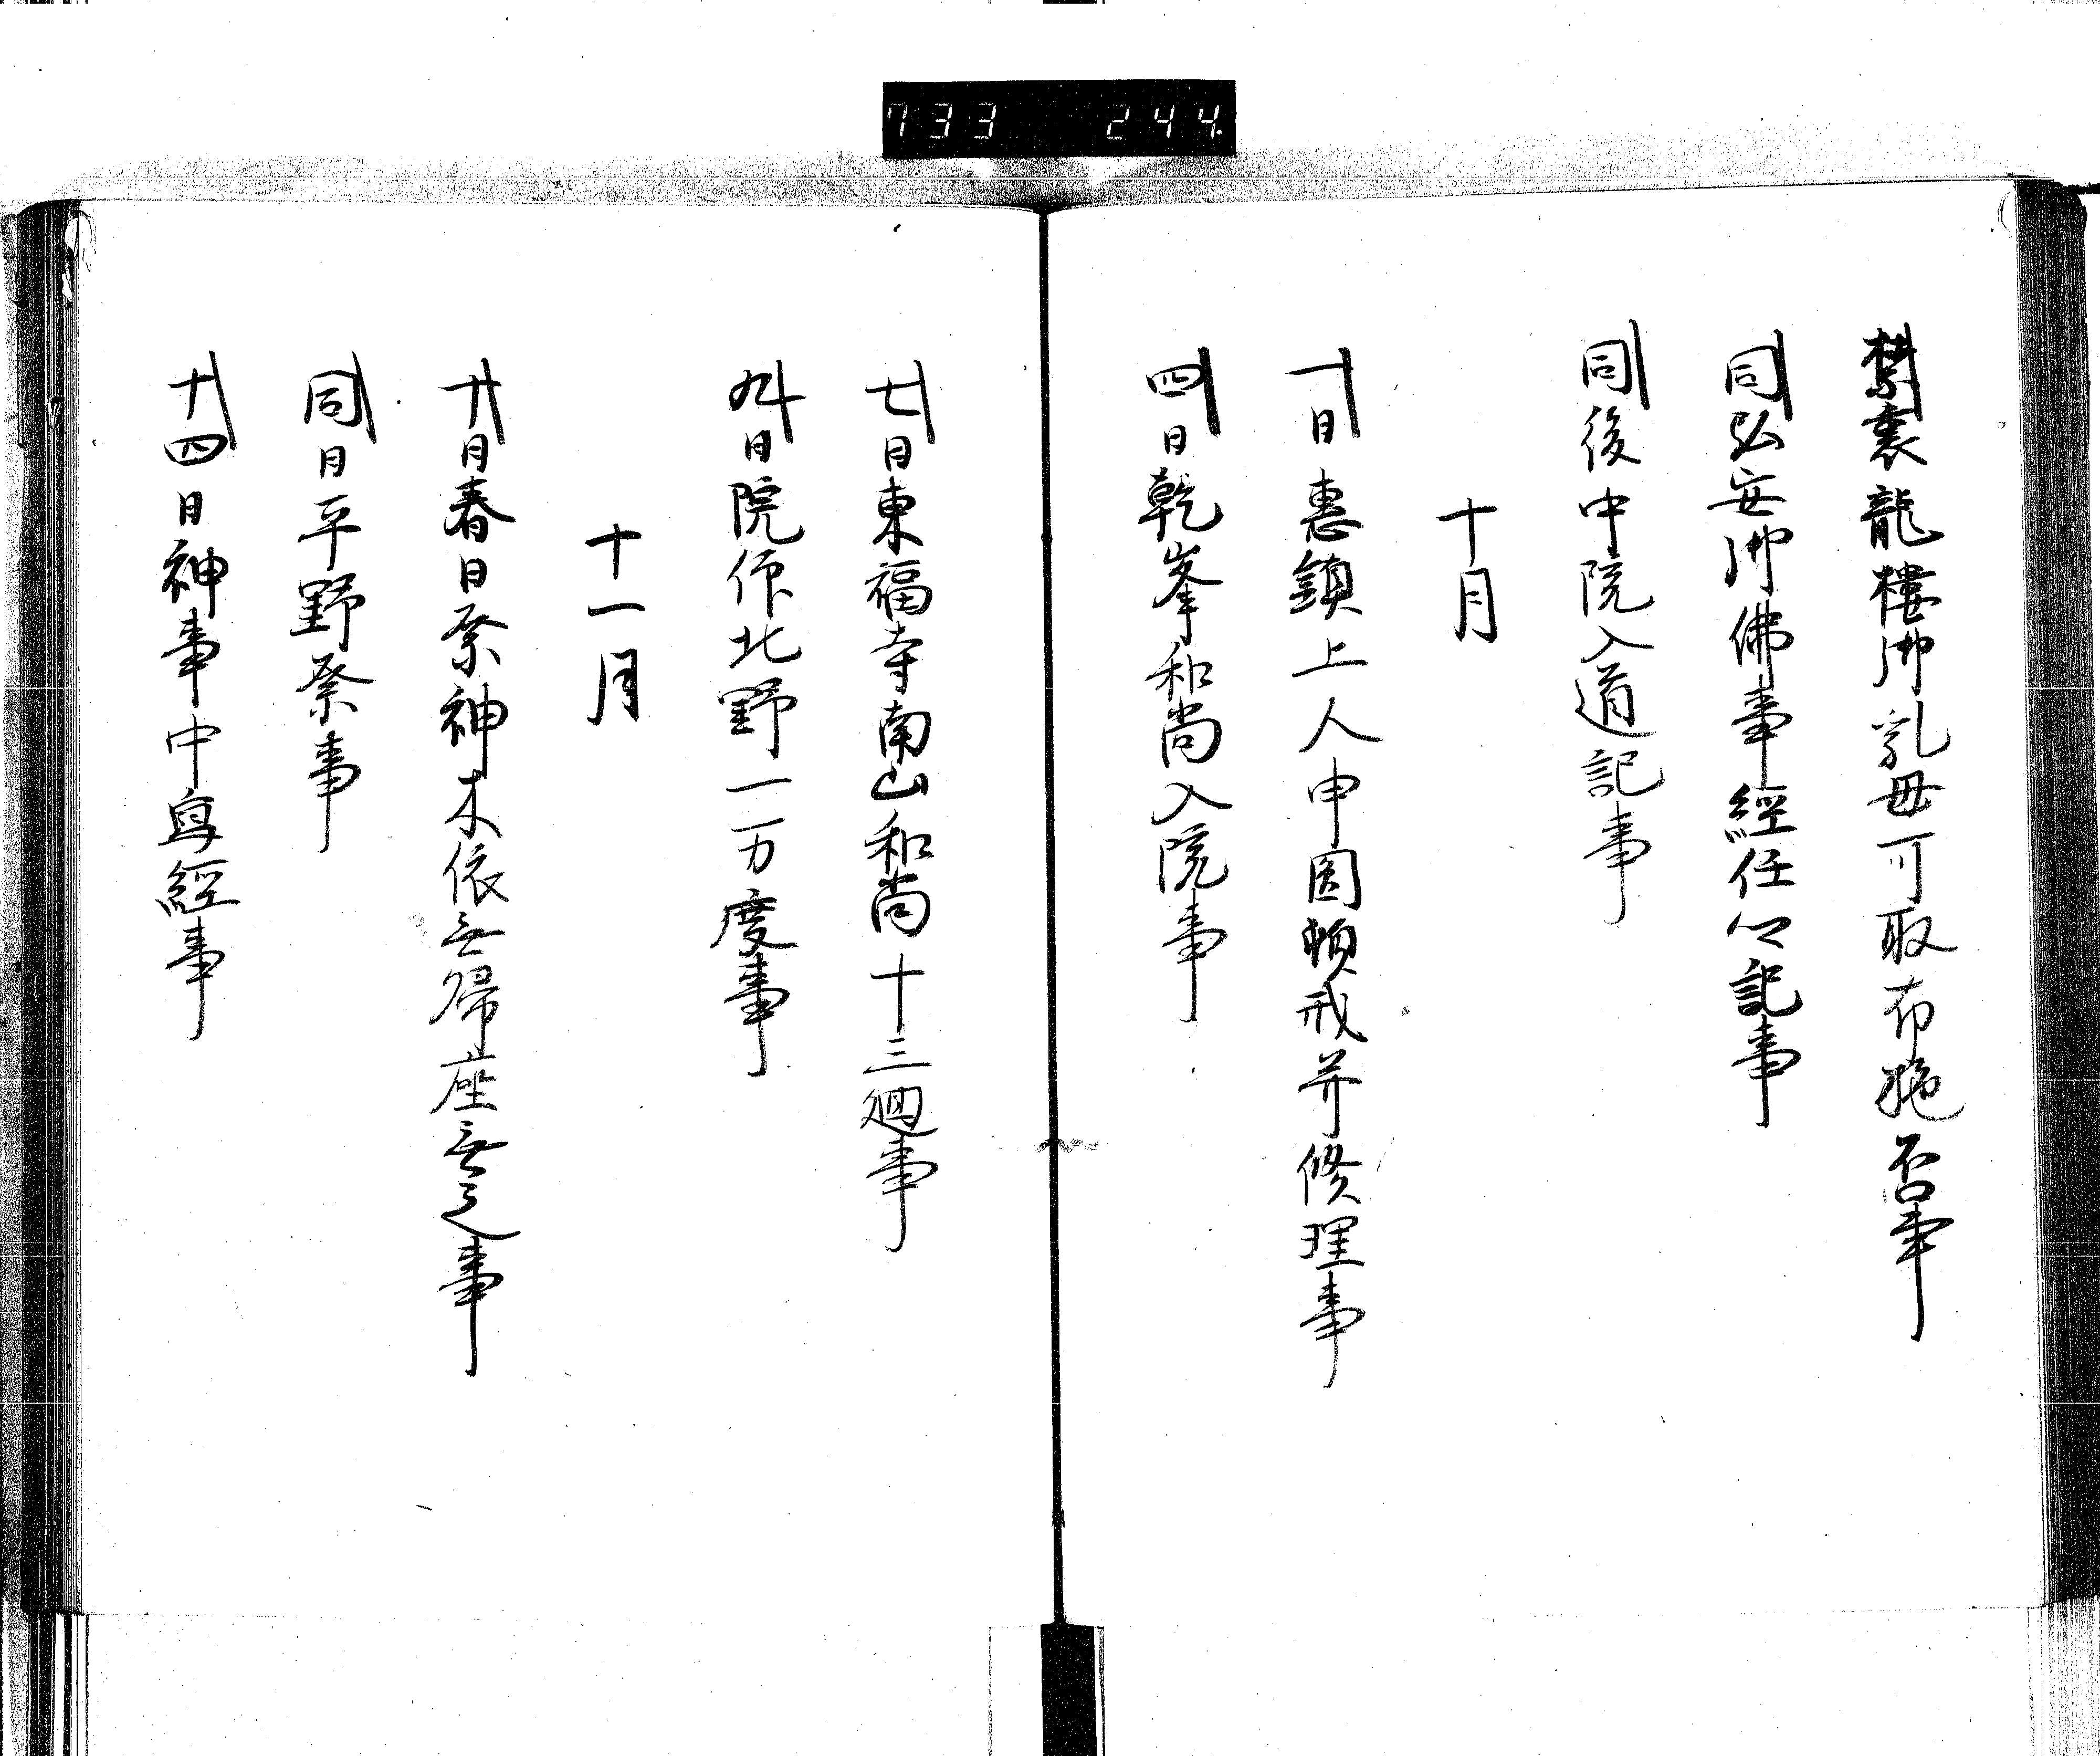 733 244
禁裏龍樓御乳母可取布施否事
同弘安御佛事經任公記事
同後中院入道記事
十月
一日惠鎮上人申圓頓戒并修理事
四日乾峯和尚入院事
七日東福寺南山和尚十三廻事
九日院御作北野一万度事
十一月
十日春日祭神木依無帰座無之事
同日平野祭事
十四日神事中寫經事